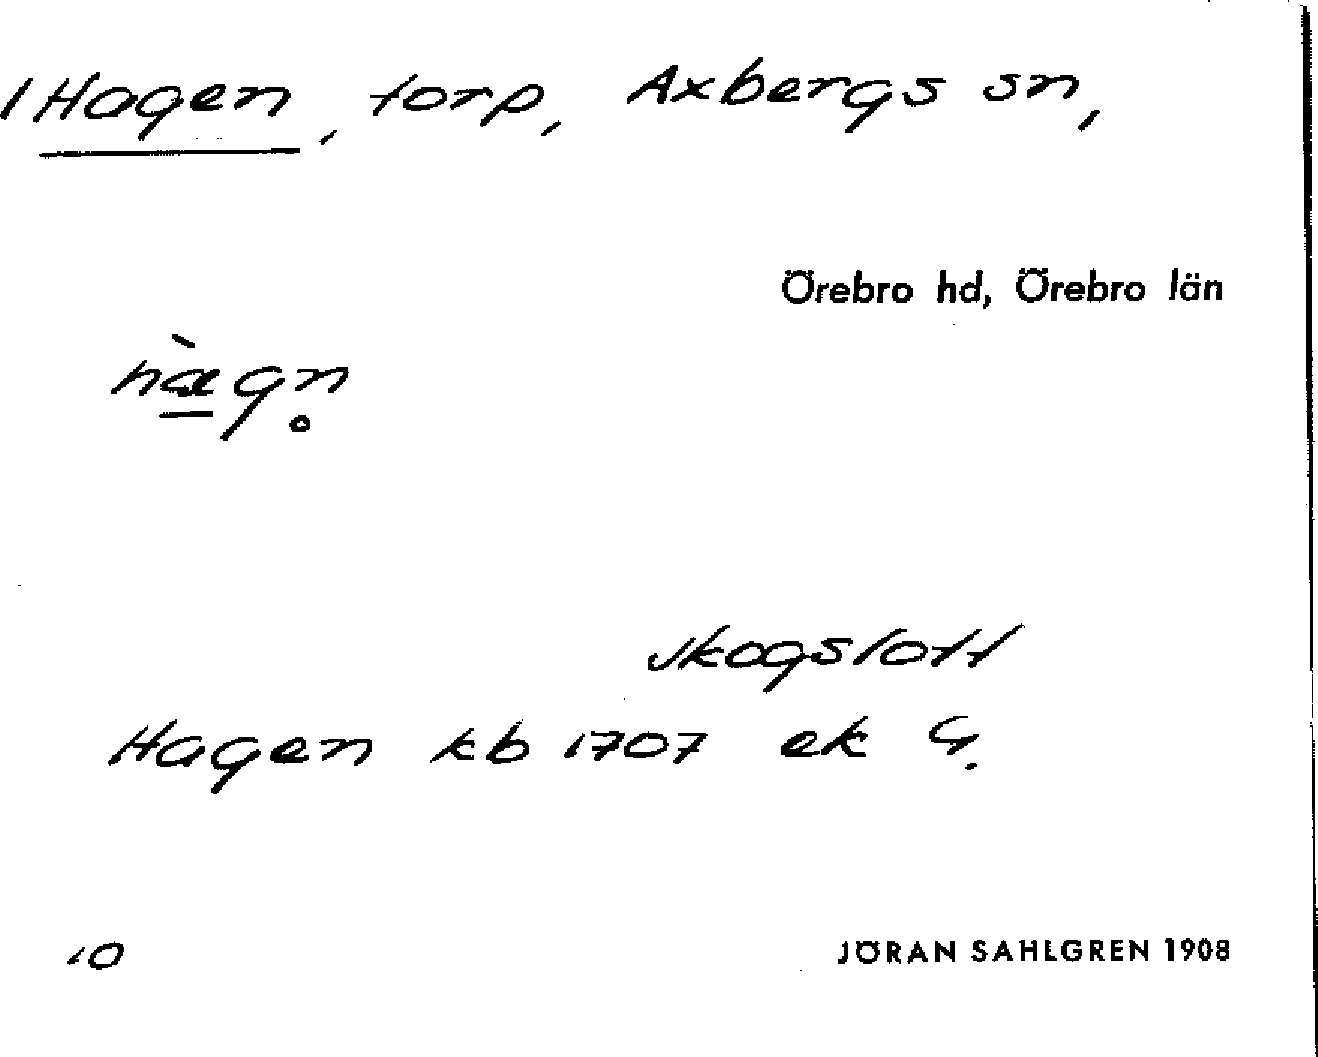 1 Hagen, torp, Axbergs sn,
Örebro hd, Örebro län
hàgn̥
skogslott
Hagen kb 1707 ek G.
10
JÖRAN SAHLGREN 1908